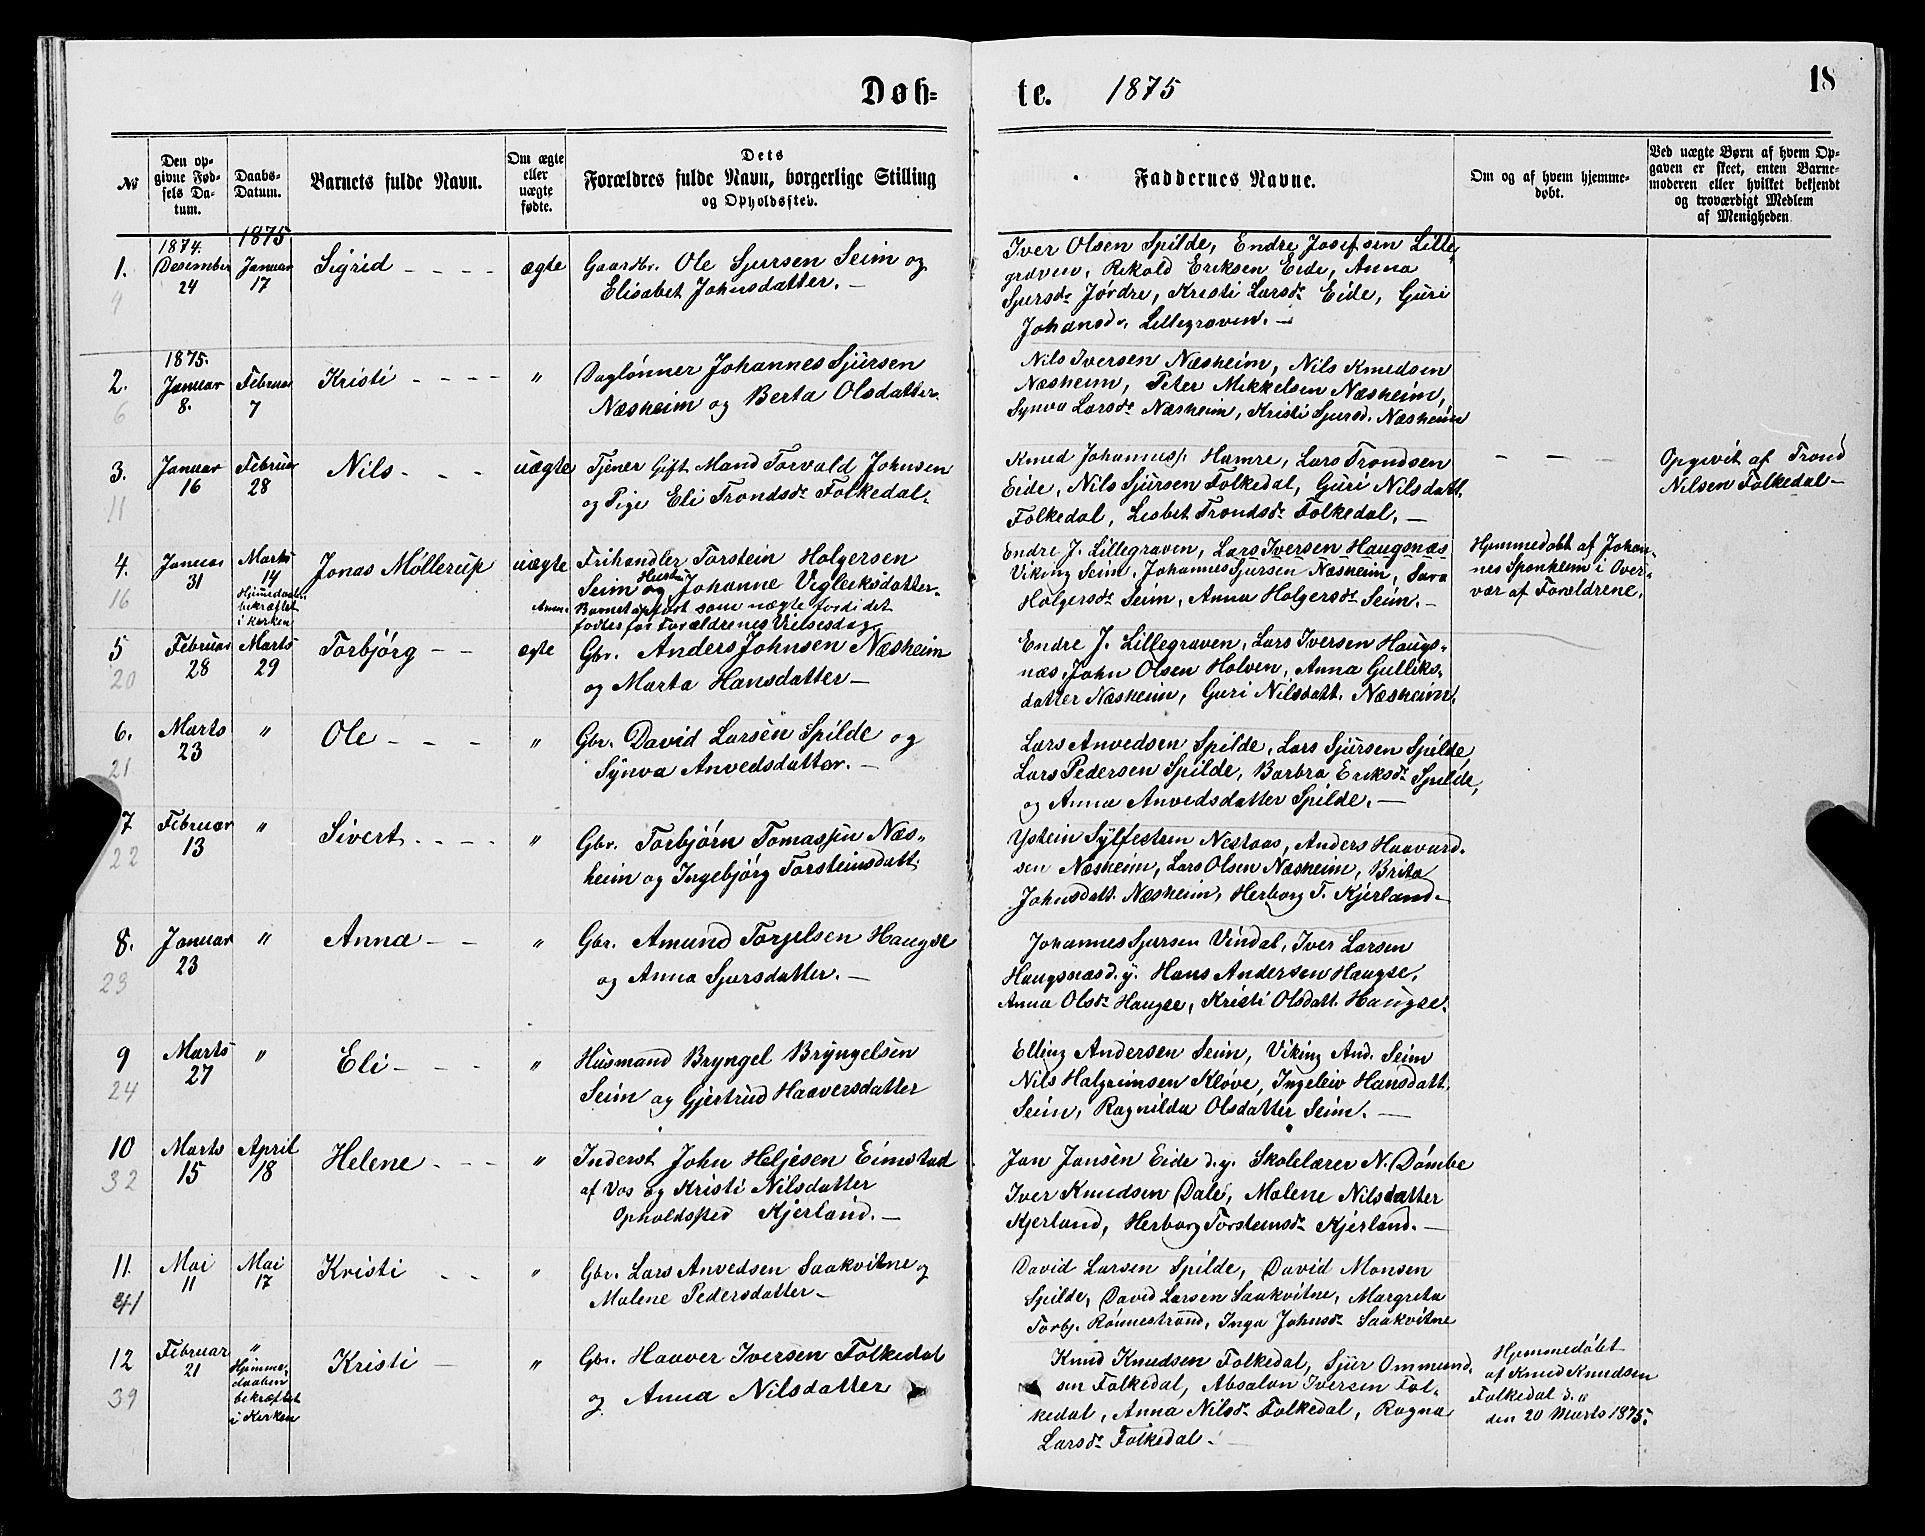 Døb-
te. 1875
18
№
Den op-
givne Fød-
sels Da-
tum.
Daabs-
Datum.
Barnets fulde Navn.
Om ægte
eller
uægte
fødte.
Dets
Forældres fulde Navn, borgerlige Stilling
og Opholdssted.
Faddernes Navne.
Om og af hvem hjemme-
døbt.
Ved uægte Børn af hvem Op-
gaven er skeet, enten Barne-
moderen eller hvilket bekjendt
og troværdigt Medlem
af Menigheden
1.
1874.
Desember
24
1875
Januar
17
Sigrid
ægte
Gaardbr. Ole Sjursen Seim og
Elisabet Johnsdatter.
Iver Olsen Spilde, Endre Josefsen Lille-
graven, Rikold Eriksen Eide, Anna
Sjursdr Jørdre, Kristi Larsdr Eide, Guri
Johansdr. Lillegraven.
2.
6
1875.
Januar
8.
Februar
7
Kristi
"
Daglønner Johannes Sjursen
Næsheim og Berta Olsdatter.
Nils Iversen Næsheim, Nils Knudsen
Næsheim, Peter Mikkelsen Næsheim,
Synva Larsdr Næsheim, Kristi Sjursd. Næsheim
3.
11
Januar
16
Februar
28
Nils
uægte
Tjener Gift Mand Torvald Johnsen
og Pige Eli Trondsdr Folkedal.
Knud Johannes. Hamre, Lars Trondsen
Eide, Nils Sjursen Folkedal, Guri Nilsdatt.
Folkedal, Lisbet Trondsdr Folkedal.
Opgivit af Trond
Nilsen Folkedal
4.
16
Januar
31
Marts
14
Hjemedaab.
bekræftet
i Kirken
Jonas Møllerup
uægte
Frihandler Torstein Holgersen
Seim og Hustru Johanne Vigleiksdatter.
Anm. Barnet opført som uægte fordi det
fødtes før Forældrenes Vielsesdag
Endre J. Lillegraven, Lars Iversen Haugsnæs
Viking Seim, Johannes Sjursen Næsheim, Sara
Holgersdr Seim, Anna Holgersdr Seim.
Hjemmedøbt af Johan-
nes Sponheim i Over-
vær af Forældrene.
5
20
Februar
28
Marts
29
Torbjørg
ægte
Gbr. Anders Johnsen Næsheim
og Marta Hansdatter
Endre J. Lillegraven, Lars Iversen Haugs-
næs, John Olsen Holven, Anna Gulliks-
datter Næsheim, Guri Nilsdatt. Næsheim.
6.
21
Marts
23
"
Ole
"
Gbr. David Larsen Spilde og
Synva Anvedsdatter.
Lars Anvedsen Spilde, Lars Sjursen Spilde,
Lars Pedersen Spilde, Barbra Eriksdr Spilde,
og Anna Anvedsdatter Spilde.
7
22
Februar
13
"
Sivert
"
Gbr. Torbjørn Tomassen Næs-
heim og Ingebjørg Torsteinsdatt.
Ystein Sylfesten Nestaas, Anders Haavard-
sen Næsheim, Lars Olsen Næsheim, Brita
Johnsdatt. Næsheim, Herborg T. Kjerland.
8.
23
Januar
23
"
Anna
"
Gbr. Amund Torjelsen Haugse
og Anna Sjursdatter.
Johannes Sjursen Vindal, Iver Larsen
Haugsnæs d. y. Hans Andersen Haugse,
Anna Olsdr Haugse, Kristi Olsdatt. Haugse.
9
24
Marts
27
"
Eli
"
Husmand Bryngel Bryngelsen
Seim og Gjertrud Haaversdatter
Elling Andersen Seim, Viking And. Seim
Nils Halgrimsen Kløve, Ingeleiv Hansdatt.
Seim, Ragnilda Olsdatter Seim.
10
32
Marts
15
April
18
Helene
"
Inderst John Heljesen Eimstad
af Vos og Kristi Nilsdatter
Opholdssted Kjerland.
Jan Jansen Eide d.y. Skolelærer N. Dømbe
Iver Knudsen Dale, Malene Nilsdatter
Kjerland, Herborg Torsteinsdr Kjerland.
11.
41
Mai
11
Mai
17
Kristi
"
Gbr. Lars Anvedsen Saakvitne og
Malene Pedersdatter
David Larsen Spilde, David Monsen
Spilde, David Larsen Saakvitne, Margreta
Torbj. Rønnestrand, Inga Johnsdr Saakvitne
12
39
Februar
21
"
Hjemme-
daaben
bekræftet
i Kirken
Kristi
"
Gbr. Haaver Iversen Folkedal
og Anna Nilsdatter
Knud Knudsen Folkedal, Sjur Ommund-
sen Folkedal, Absalon Iversen Fol-
kedal, Anna Nilsdr Folkedal, Ragna
Larsdr Folkedal.
Hjemmedøbt
af Knud Knudsen
Folkedal d.
den 20 Marts 1875.